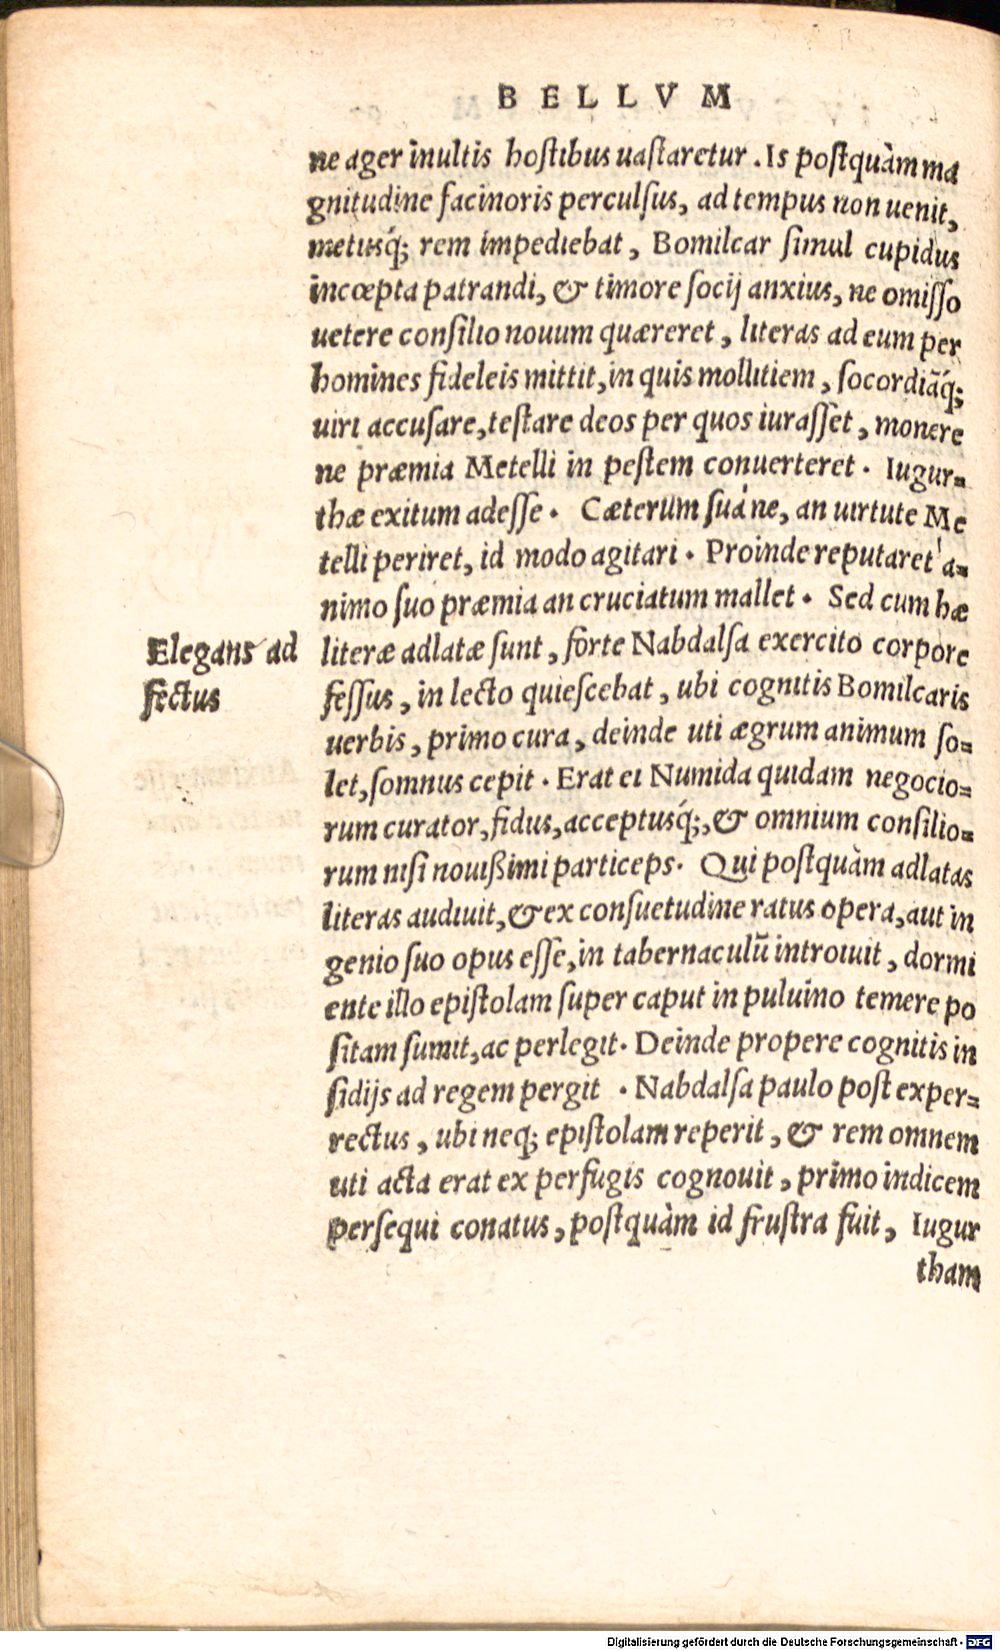 BELLVM
ne ager inultis hostibus uastaretur. Is postquàm ma
gnitudine facinoris perculsus, ad tempus non uenit,
metusq́; rem impediebat, Bomilcar simul cupidus
incœpta patrandi, & timore socij anxius, ne omisso
uetere consilio nouum quæreret, literas ad eum per
homines fideleis mittit, in quis mollitiem, socordiãq́;
uiri accusare, testare deos per quos iurasset, monere
ne præmia Metelli in pestem conuerteret. Iugur-
thæ exitum adesse. Cæterum suá ne, an uirtute Me
telli periret, id modo agitari. Proinde reputaret a-
nimo suo præmia an cruciatum mallet. Sed cum hæ
Elegans ad
fectus
literæ adlatæ sunt, forte Nabdalsa exercito corpore
fessus, in lecto quiescebat, ubi cognitis Bomilcaris
uerbis, primo cura, deinde uti ægrum animum so-
let, somnus cepit. Erat ei Numida quidam negocio-
rum curator, fidus, acceptusq́;, & omnium consilio-
rum nisi nouißimi particeps. Qui postquàm adlatas
literas audiuit, & ex consuetudine ratus opera, aut in
genio suo opus esse, in tabernaculũ introiuit, dormi
ente illo epistolam super caput in puluino temere po
sitam sumit, ac perlegit. Deinde propere cognitis in
sidijs ad regem pergit. Nabdalsa paulo post exper-
rectus, ubi neq; epistolam reperit, & rem omnem
uti acta erat ex perfugis cognouit, primo indicem
persequi conatus, postquàm id frustra fuit, Iugur
tham
Digitalisierung gefördert durch die Deutsche Forschungsgemeinschaft - DFG